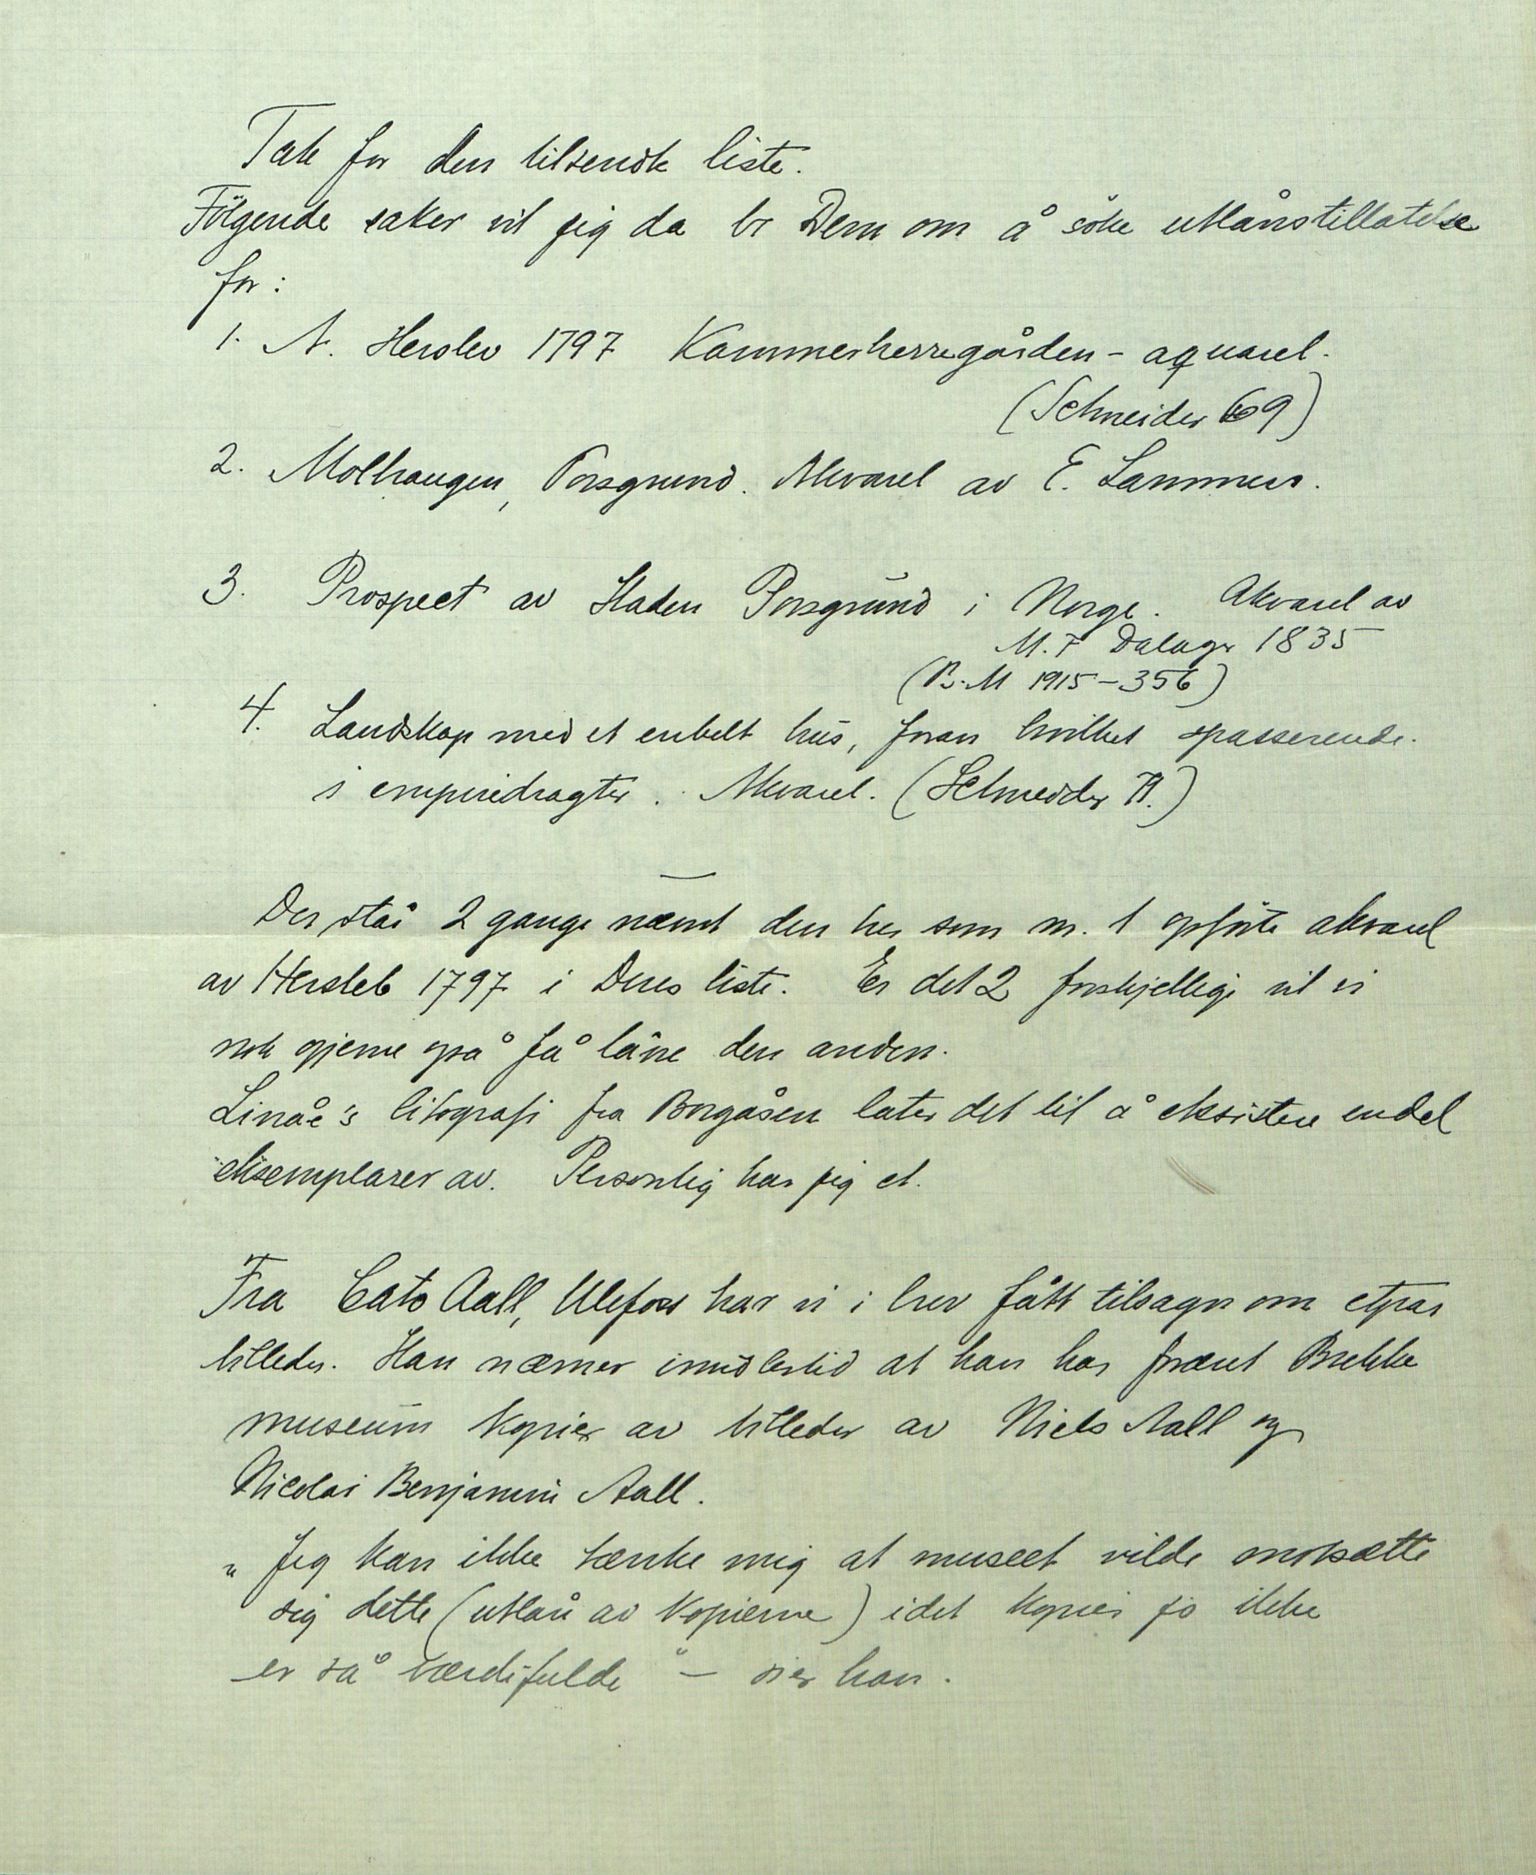 Tak for den tilsendte liste.
Følgende saker vil jeg da be Dem om å søke utlånstillatelse
for:
1. N. Herslev 1797 Kammerherregården - aquarel.
(Schneider 69)
2. Molhaugen, Porsgrund. Akvarel av E. Lammers.
3. Prospect av Staden Porsgrund i Norge. Akvarel av
M. F Dalager 1835
(B.M 1915-356)
4. Landskap med et enkelt hus, foran hvilket spasserende
i empiredragter. Akvarel. (Schneider
Der står 2 gange nævnt den her som nr. 1 opførte akvarel
av Hersleb 1797 i Deres liste. Er det 2 forskjellige vil vi
nok gjerne også få låne den anden.
Linåe's litografi fra Borgåsen later det til å eksistere endel
eksemplarer av. Personlig har jeg et.
Fra Cato Aall, Ulefoss har vi i brev fått tilsagn om etpar
billeder. Han nævner imidlertid at han har foræret Brekke
museum kopier av billeder av Niels Aall og
Nicolai Benjamin Aall.
„Jeg kan ikke tænke mig at museet vilde motsætte
sig dette (utlån av kopierne) idet kopier jo ikke
er så værdifulde" - sier han.